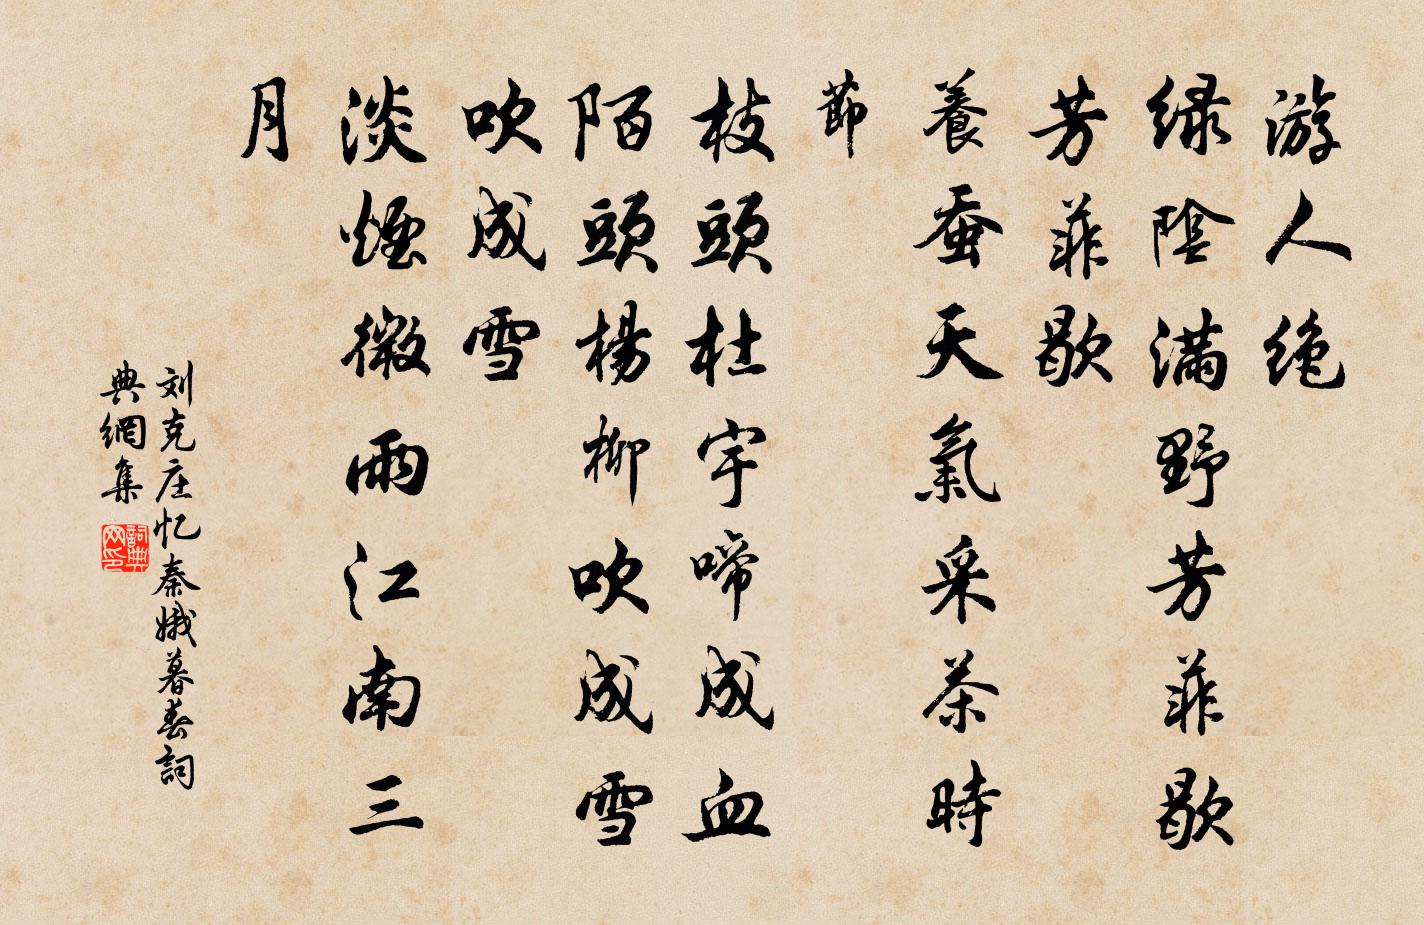 游人绝
绿陰满野芳菲歇
芳菲歇
養蚕天氣采茶時
節
枝頭杜宇啼成血
陌頭楊柳吹成雪
吹成雪
淡煙微雨江南三
月
刘克庄忆秦娥暮春詞
典網集
詞典
网印